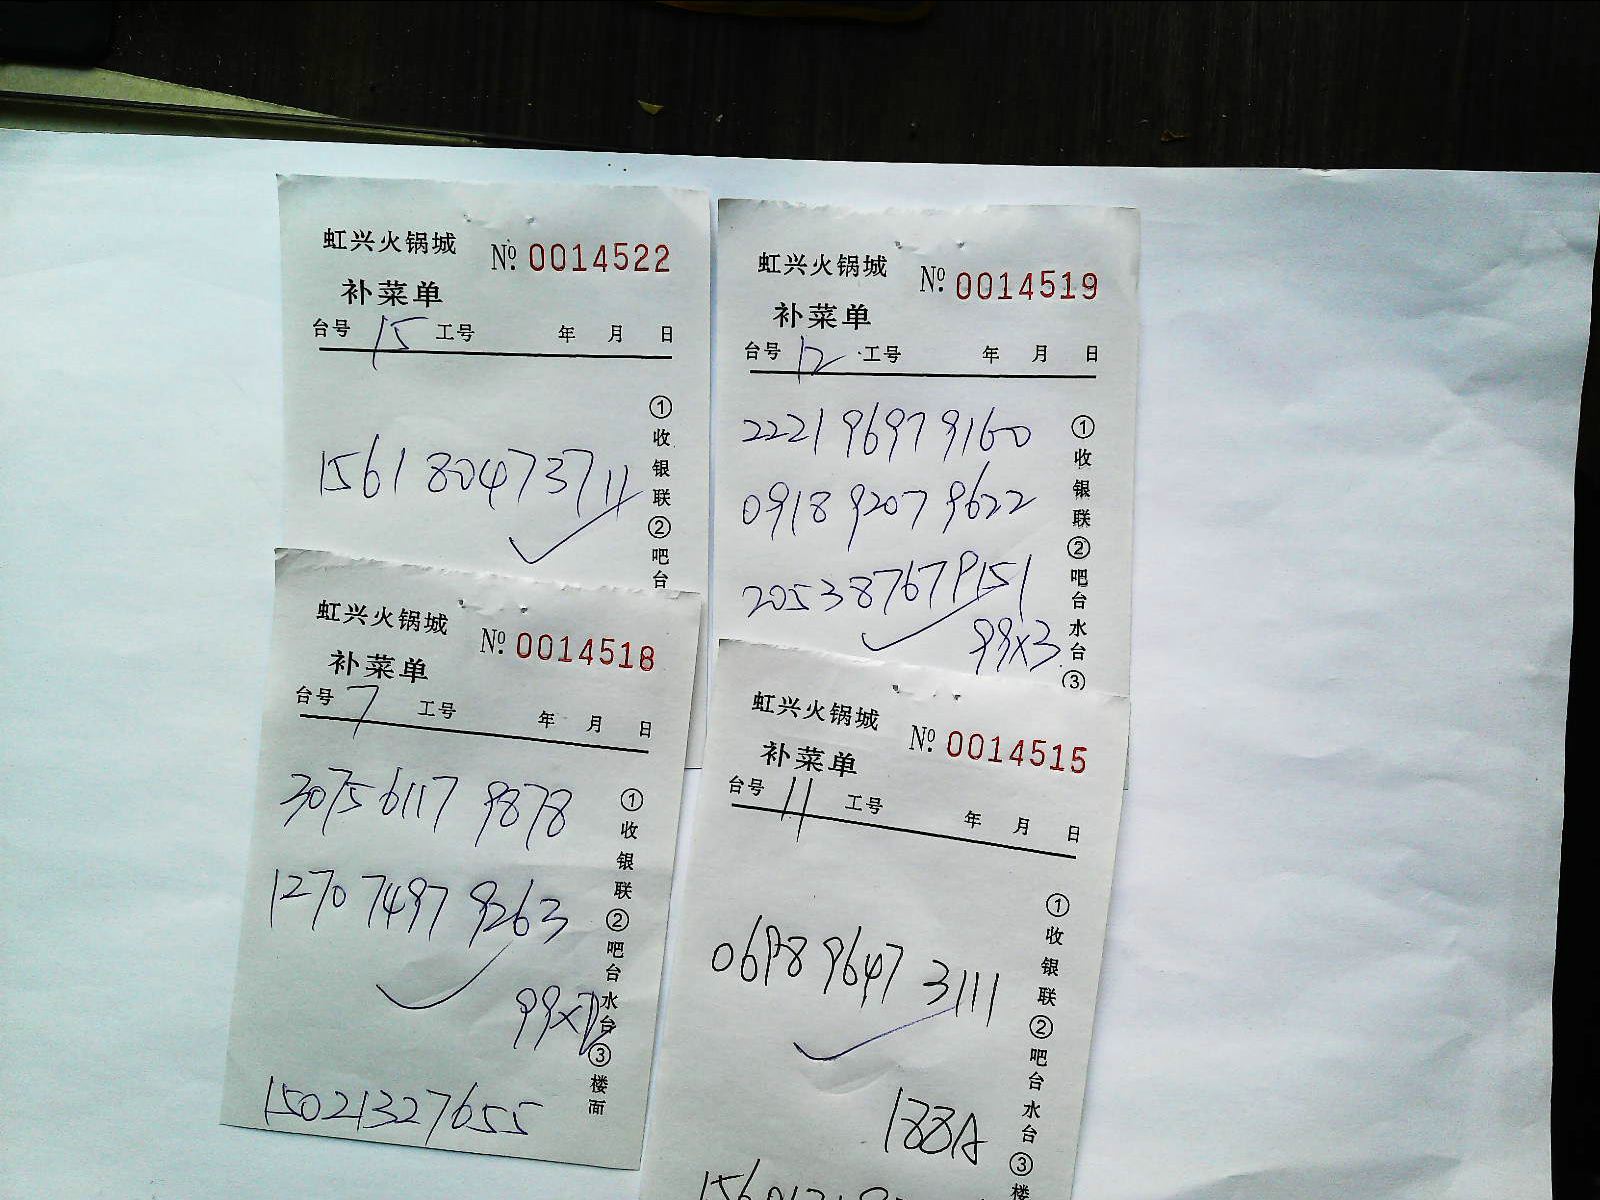 虹兴火锅城 № 0014522
补菜单
台号 15 工号 年 月 日
1561 8047 3711
①收银联②吧台
虹兴火锅城 № 0014519
补菜单
台号 12 工号 年 月 日
2221 9697 9160
0918 9207 9622
2053 8767 9151
99x3
①收银联②吧台水台③
虹兴火锅城 № 0014518
补菜单
台号 7 工号 年 月 日
3075 6117 9878
1270 7497 9263
99x2
15021327655
①收银联②吧台水台③楼面
虹兴火锅城 № 0014515
补菜单
台号 11 工号 年 月 日
0698 9647 3111
188A
①收银联②吧台水台③楼